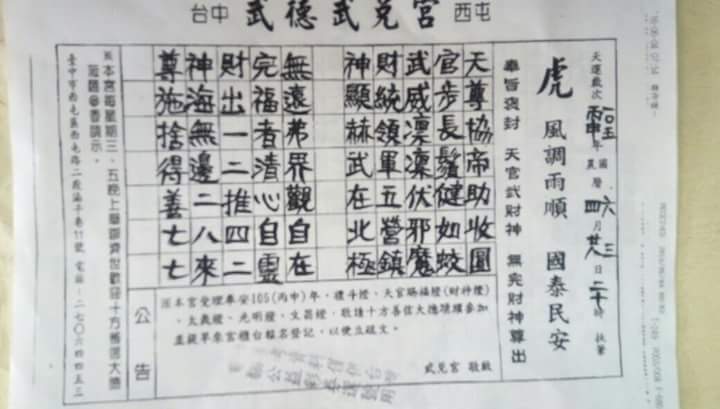 台中 武德武兌宮 西屯
天運歲次 一〇五 丙申 年 國 農 曆 四六 月 廿三 日 二十 時 扶筆
虎 風調雨順 國泰民安
奉旨褒封 天官武財神 無完財神尊出
天尊協帝助收圓
官步長鬚健如蛟
武威凜凜伏邪魔
財統領軍五營鎮
神顯赫武在北極
無遠弗界觀自在
完福者清心自靈
財出一二推四二
神海無邊二八來
尊施捨得善七七
公告
※本宮受理奉安105(丙申)年，禮斗燈、天官賜福燈(財神燈)
、太歲燈、光明燈、文昌燈，敬請十方善信大德踴躍參加
並親早來宮櫃台報名登記，以便立疏文。
武兌宮 敬啟
※本宮每星期三、五晚上舉辦濟世歡迎十方善信大德
蒞臨參香請示。
臺中市西屯區西屯路二段 巷11號 電話：二七〇六四四五三